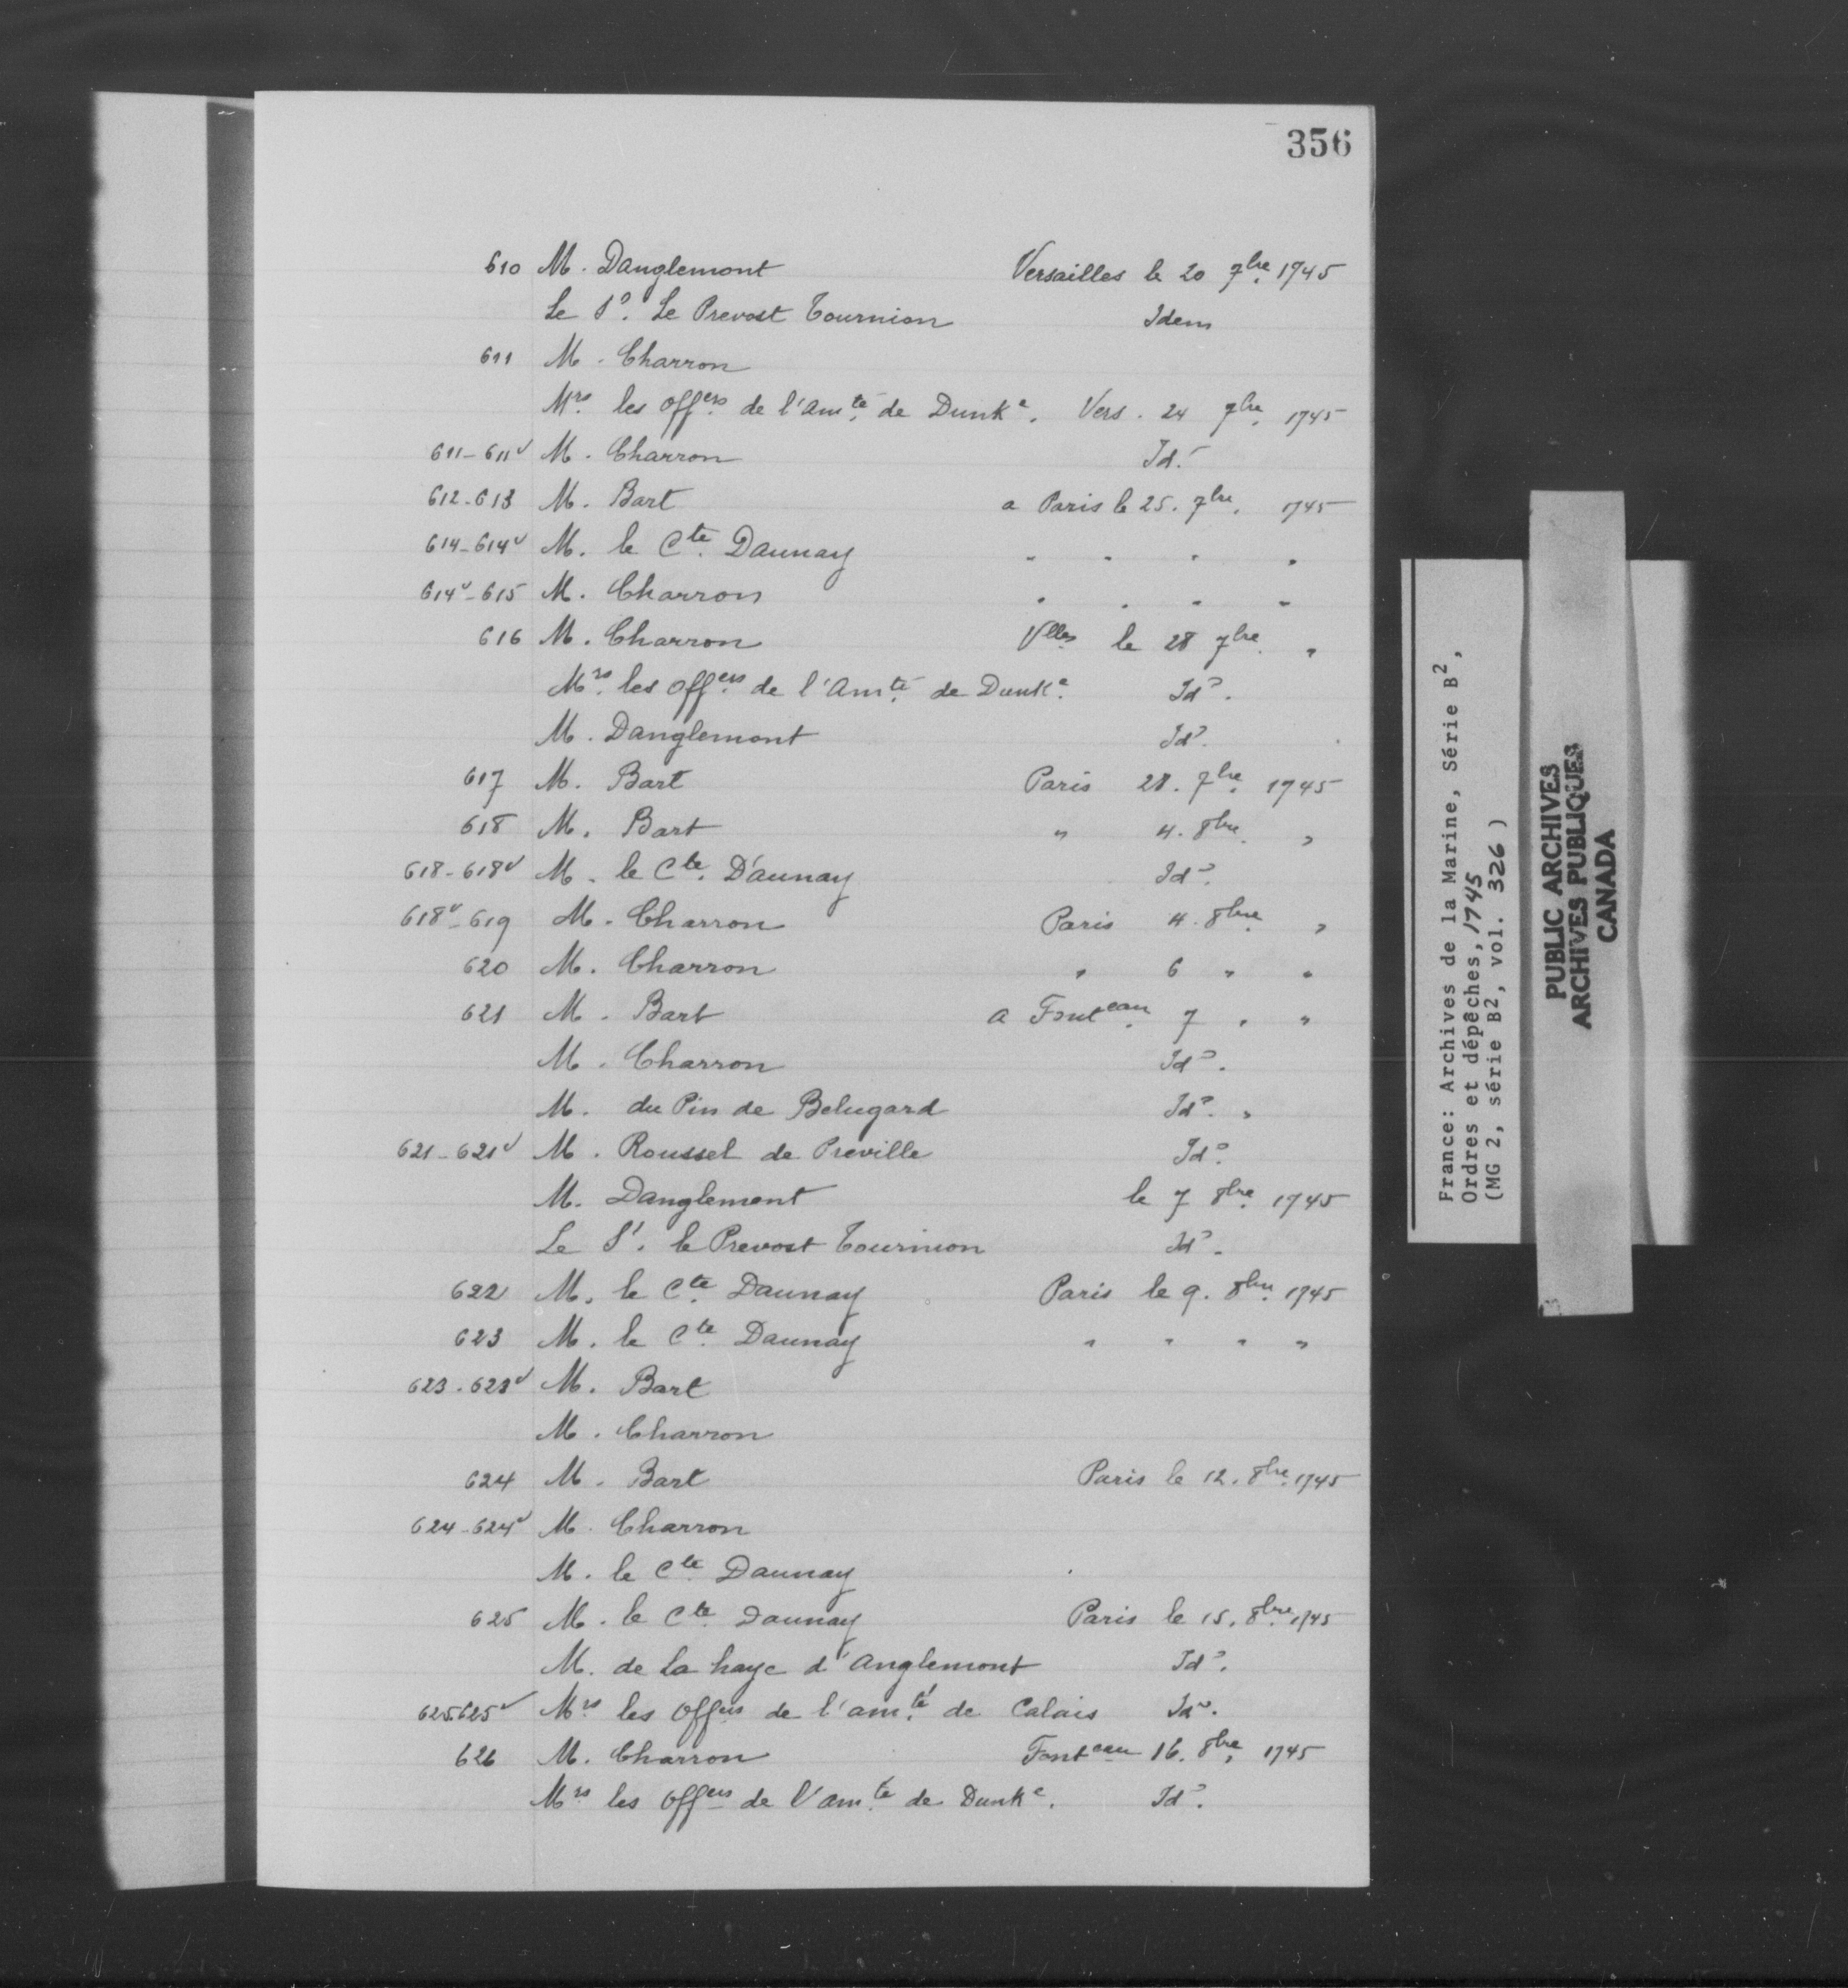 356
610 M. Danglemont Versailles le 20 7bre 1745
Le Sr. Le Prevost Tournion Idem
611 M. Charron
Mrs. les offers. de l'amté. de Dunke. Vers. 24 7bre. 1745
611-611v M. Charron Id.
612-613 M. Bart a Paris le 25. 7bre. 1745
614-614v M. le Cte. Daunay " " " "
614v-615 M. Charron " " " "
616 M. Charron Vlles le 28 7bre. "
Mrs. les offers. de l'Amté. de Dunke. Ido.
M. Danglemont Ido.
617 M. Bart Paris 28. 7bre. 1745
618 M. Bart " 4. 8bre. "
618-618v M. le Cte. D'aunay Ido.
618v-619 M. Charron Paris 4. 8bre. "
620 M. Charron " 6 " "
621 M. Bart a Fonteau. 7 " "
M. Charron Ido.
M. du Pin de Belugard Ido. "
621-621v M. Roussel de Preville Ido.
M. Danglemont le 7 8bre. 1745
Le Sr. le Prevost Tournion Ido.
622 M. le Cte. Daunay Paris le 9. 8bre. 1745
623 M. le Cte. Daunay " " " "
623-623v M. Bart
M. Charron
624 M. Bart Paris le 12. 8bre. 1745
624-624v M. Charron
M. le Cte. Daunay
625 M. le Cte. Daunay Paris le 15. 8bre. 1745
M. de la haye d'anglemont Ido.
625.625v Mrs les Offers de l'amté. de Calais Ido.
626 M. Charron Fonteau 16. 8bre. 1745
Mrs les Offers de l'amté. de Dunke. Ido.
France: Archives de la Marine, Série B2,
Ordres et dépêches, 1745
(MG 2, série B2, vol. 326)
PUBLIC ARCHIVES
ARCHIVES PUBLIQUES
CANADA